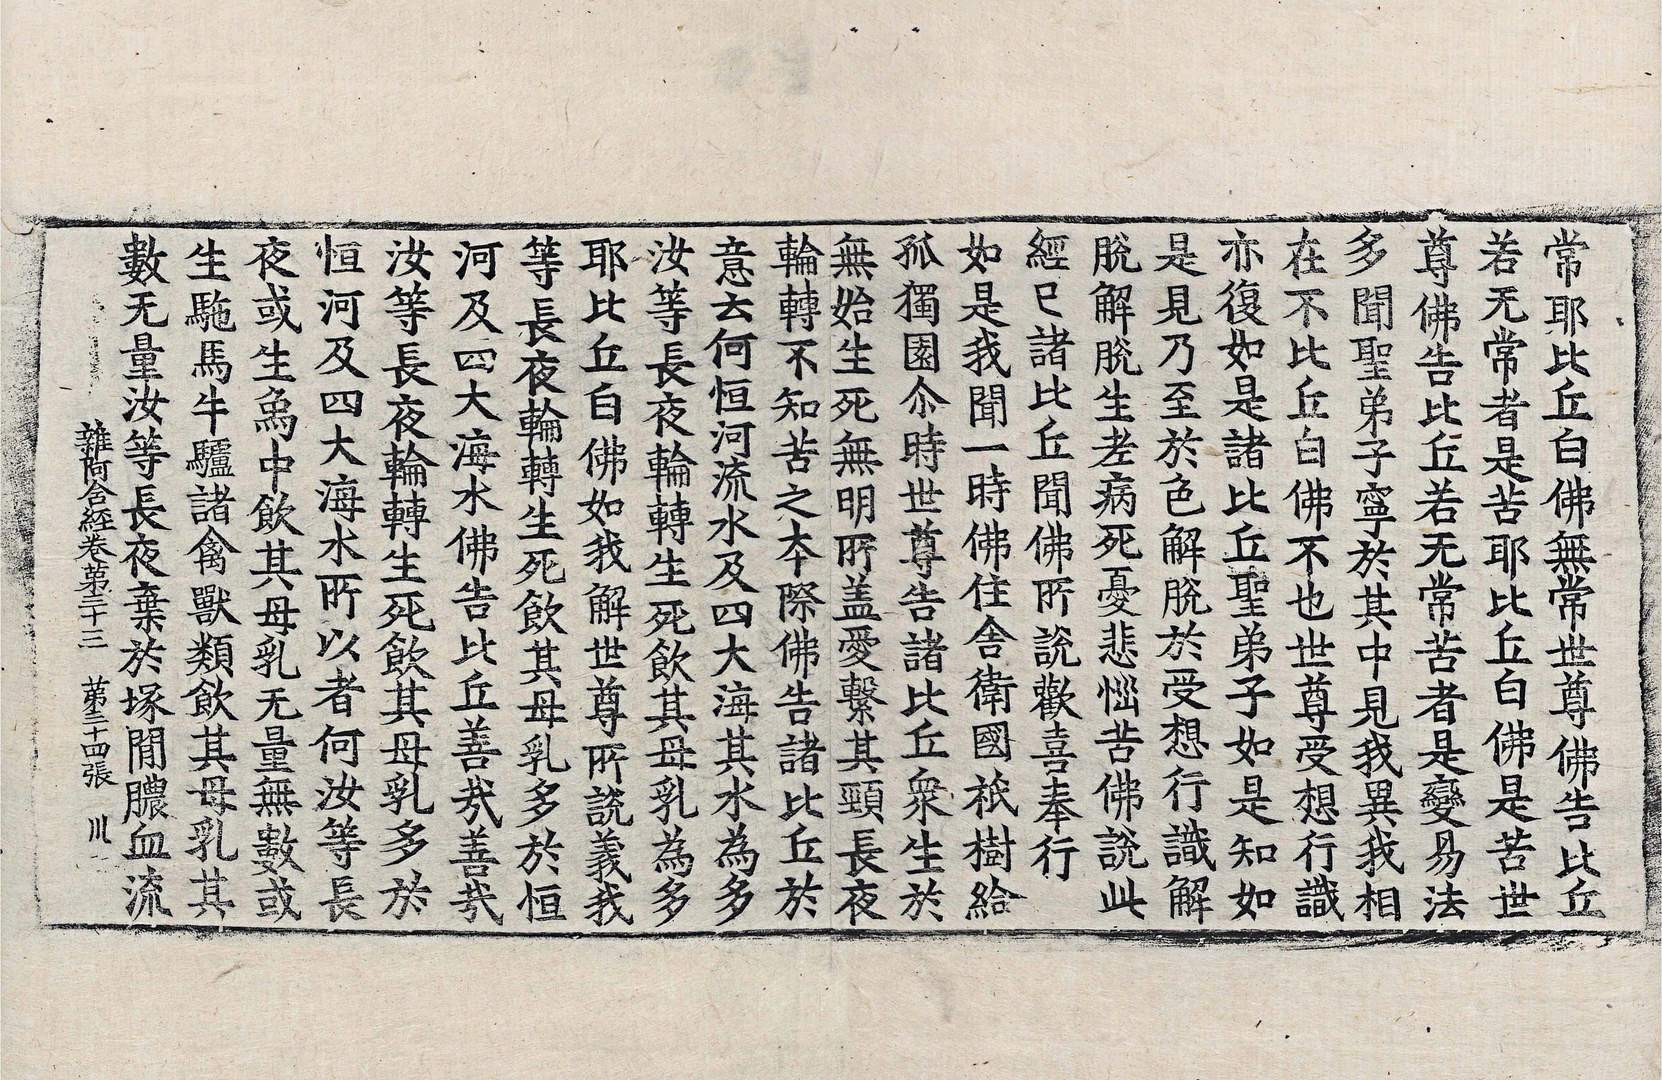 常耶比丘白佛無常世尊佛告比丘
若无常者是苦耶比丘白佛是苦世
尊佛告比丘若无常苦者是變易法
多聞聖弟子寧於其中見我異我相
在不比丘白佛不也世尊受想行識
亦復如是諸比丘聖弟子如是知如
是見乃至於色解脫於受想行識解
脫解脫生老病死憂悲惱苦佛說此
經已諸比丘聞佛所說歡喜奉行
如是我聞一時佛住舍衛國祇樹給
孤獨園尒時世尊告諸比丘衆生於
無始生死無明所盖愛繫其頸長夜
輪轉不知苦之夲際佛告諸比丘於
意云何恒河流水及四大海其水為多
汝等長夜輪轉生死飲其母乳為多
耶比丘白佛如我解世尊所說義我
等長夜輪轉生死飲其母乳多於恒
河及四大海水佛告比丘善㢤善㢤
汝等長夜輪轉生死飲其母乳多於
恒河及四大海水所以者何汝等長
夜或生鳥中飲其母乳无量無數或
生駞馬牛驢諸禽獸類飲其母乳其
數无量汝等長夜棄於塚閒膿血流
雜阿含經卷第三十三 第二十四張 川